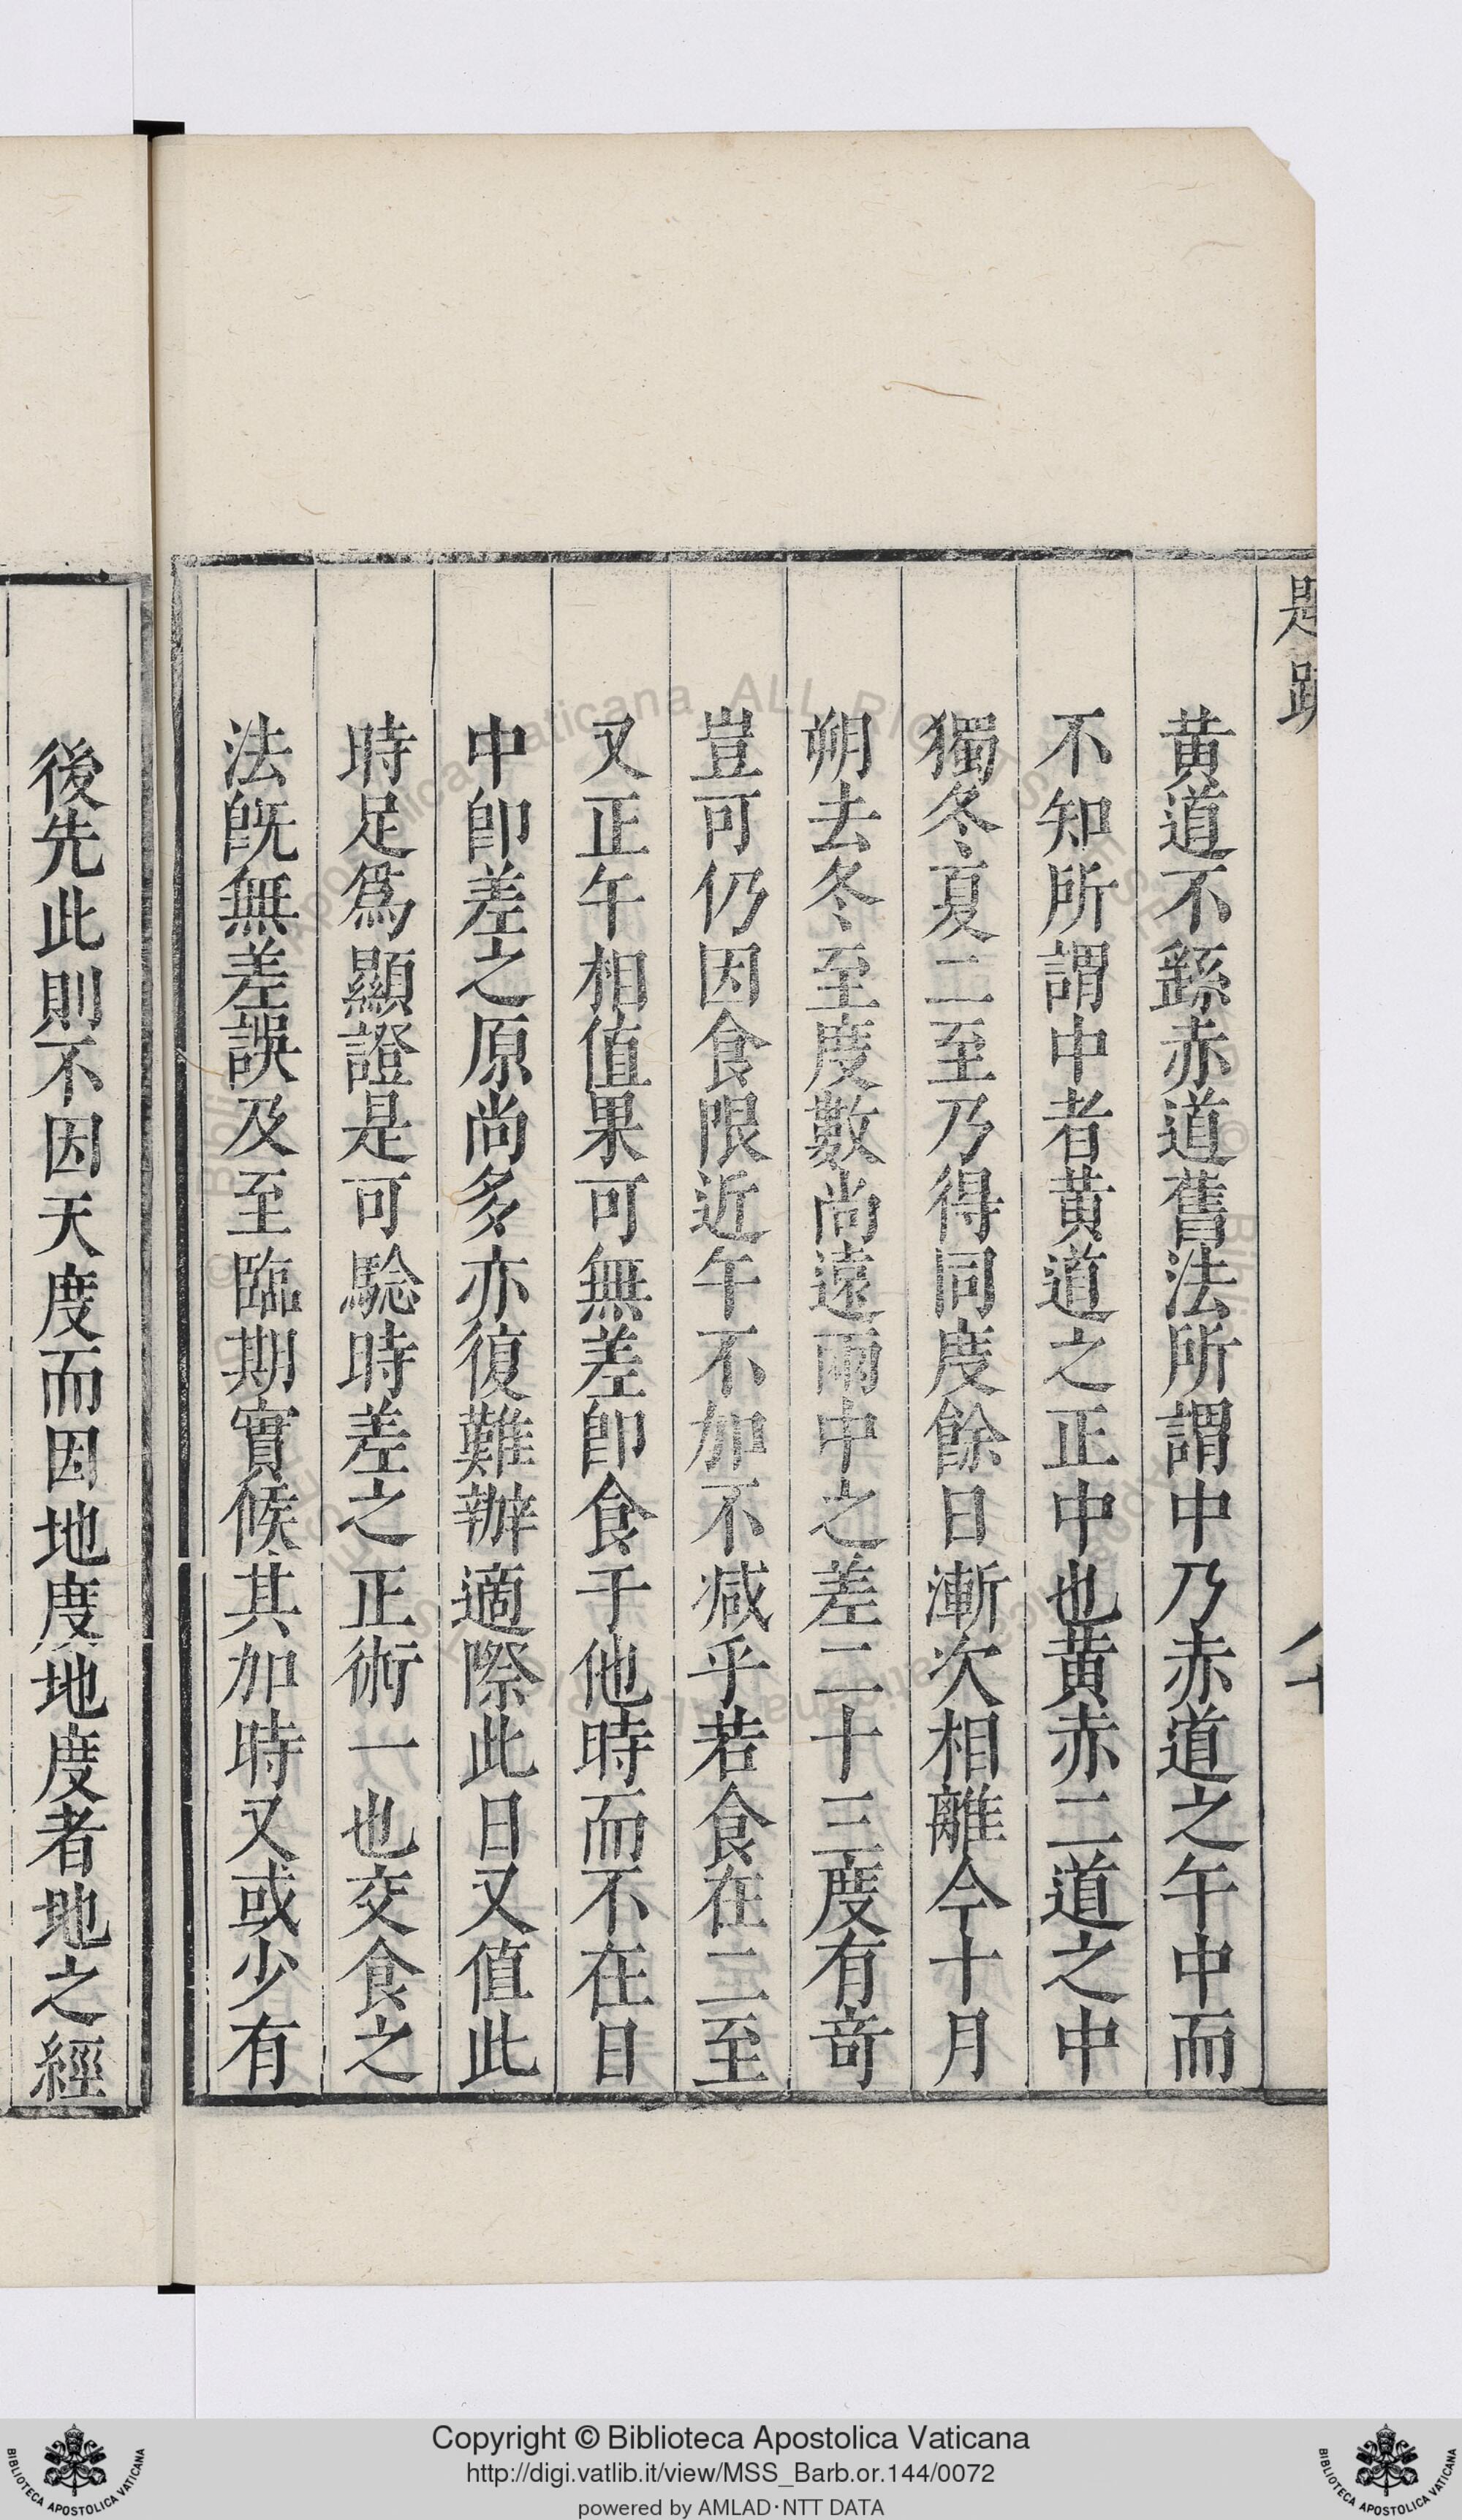 題疏
黃道不繇赤道舊法所謂中乃赤道之午中而
不知所謂中者黃道之正中也黃赤二道之中
獨冬夏二至乃得同度餘日漸次相離今十月
朔去冬至度數尚遠兩中之差二十三度有奇
豈可仍因食限近午不加不減乎若食在二至
又正午相值果可無差卽食于他時而不在日
中卽差之原尚多亦復難辦適際此日又值此
時足爲顯證是可驗時差之正術一也交食之
法旣無差誤及至臨期實候其加時又或少有
後先此則不因天度而因地度地度者地之經
Copyright © Biblioteca Apostolica Vaticana
http://digi.vatlib.it/view/MSS_Barb.or.144/0072
powered by AMLAD·NTT DATA
BIBLIOTECA APOSTOLICA VATICANA
BIBLIOTECA APOSTOLICA VATICANA